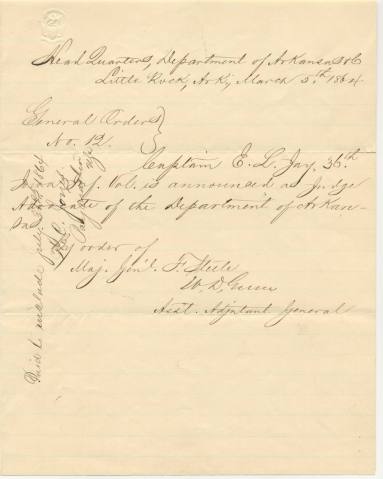 Head Quarters, Department of Arkansas &c
Little Rock, Ark, March 5th 1864
General Orders
No. 12.
Captain E. L. Joy, 36th
Iowa Inf. Vol. is announced as Judge
Advocate of the Department of Arkan-
sas
By order of
Maj. Genl. F. Steele
W. D. Green
Asst. Adjutant General
Paid to include
1864